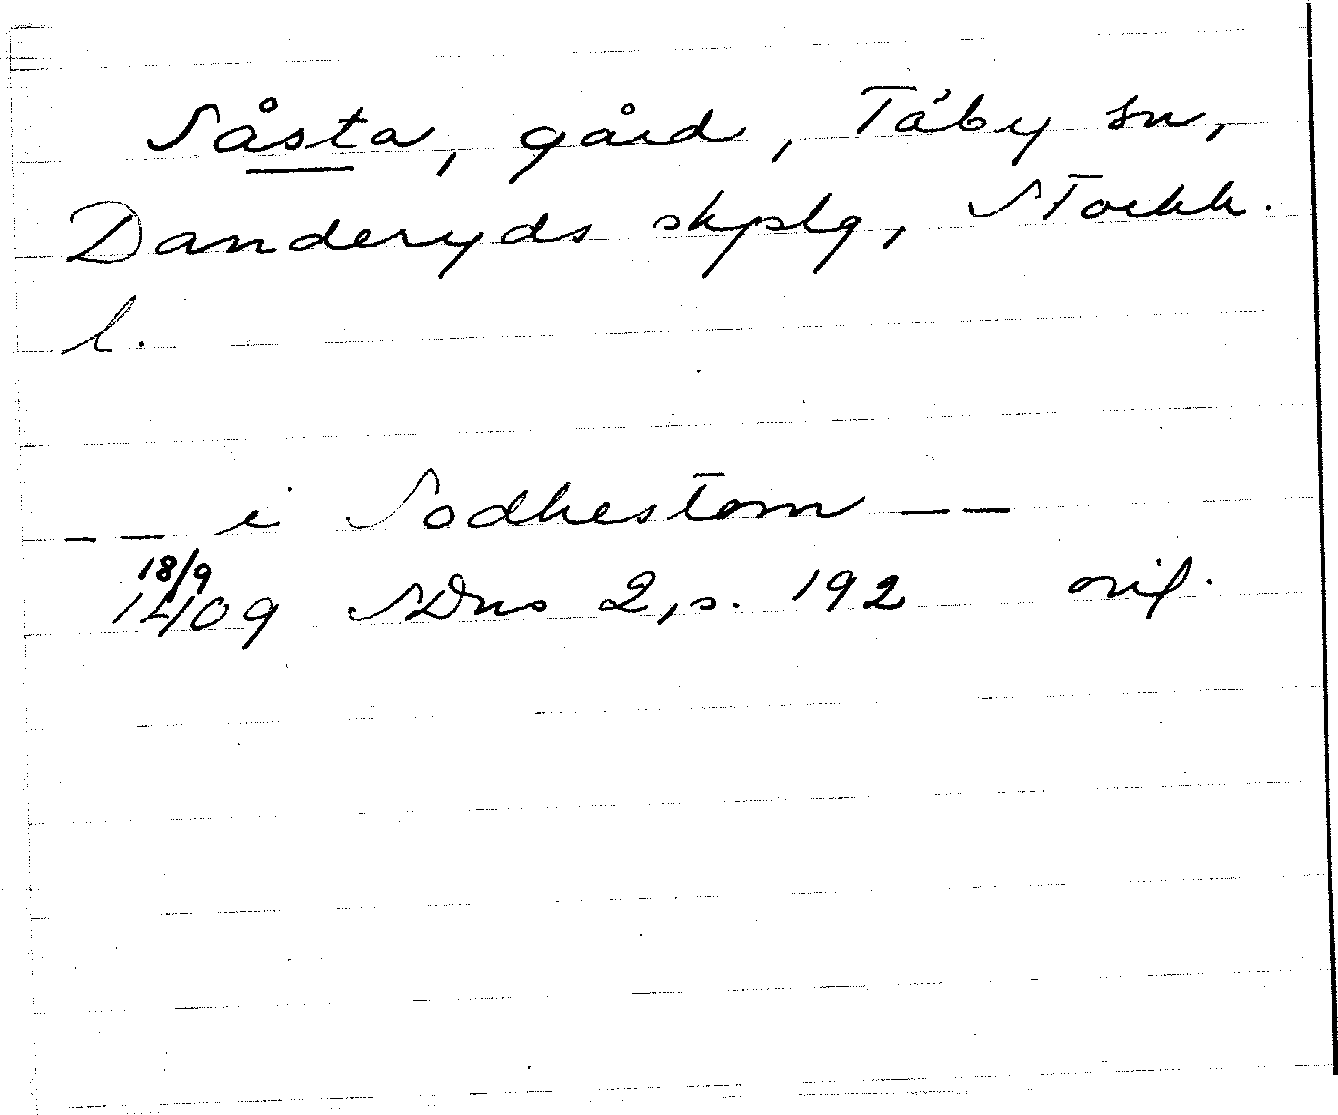 Såsta, gård, Täby sn,
Danderyds skplg, Stockh.
l.
-- i Sodhestom --
18/9
1409 SDns 2, s. 192 orig.